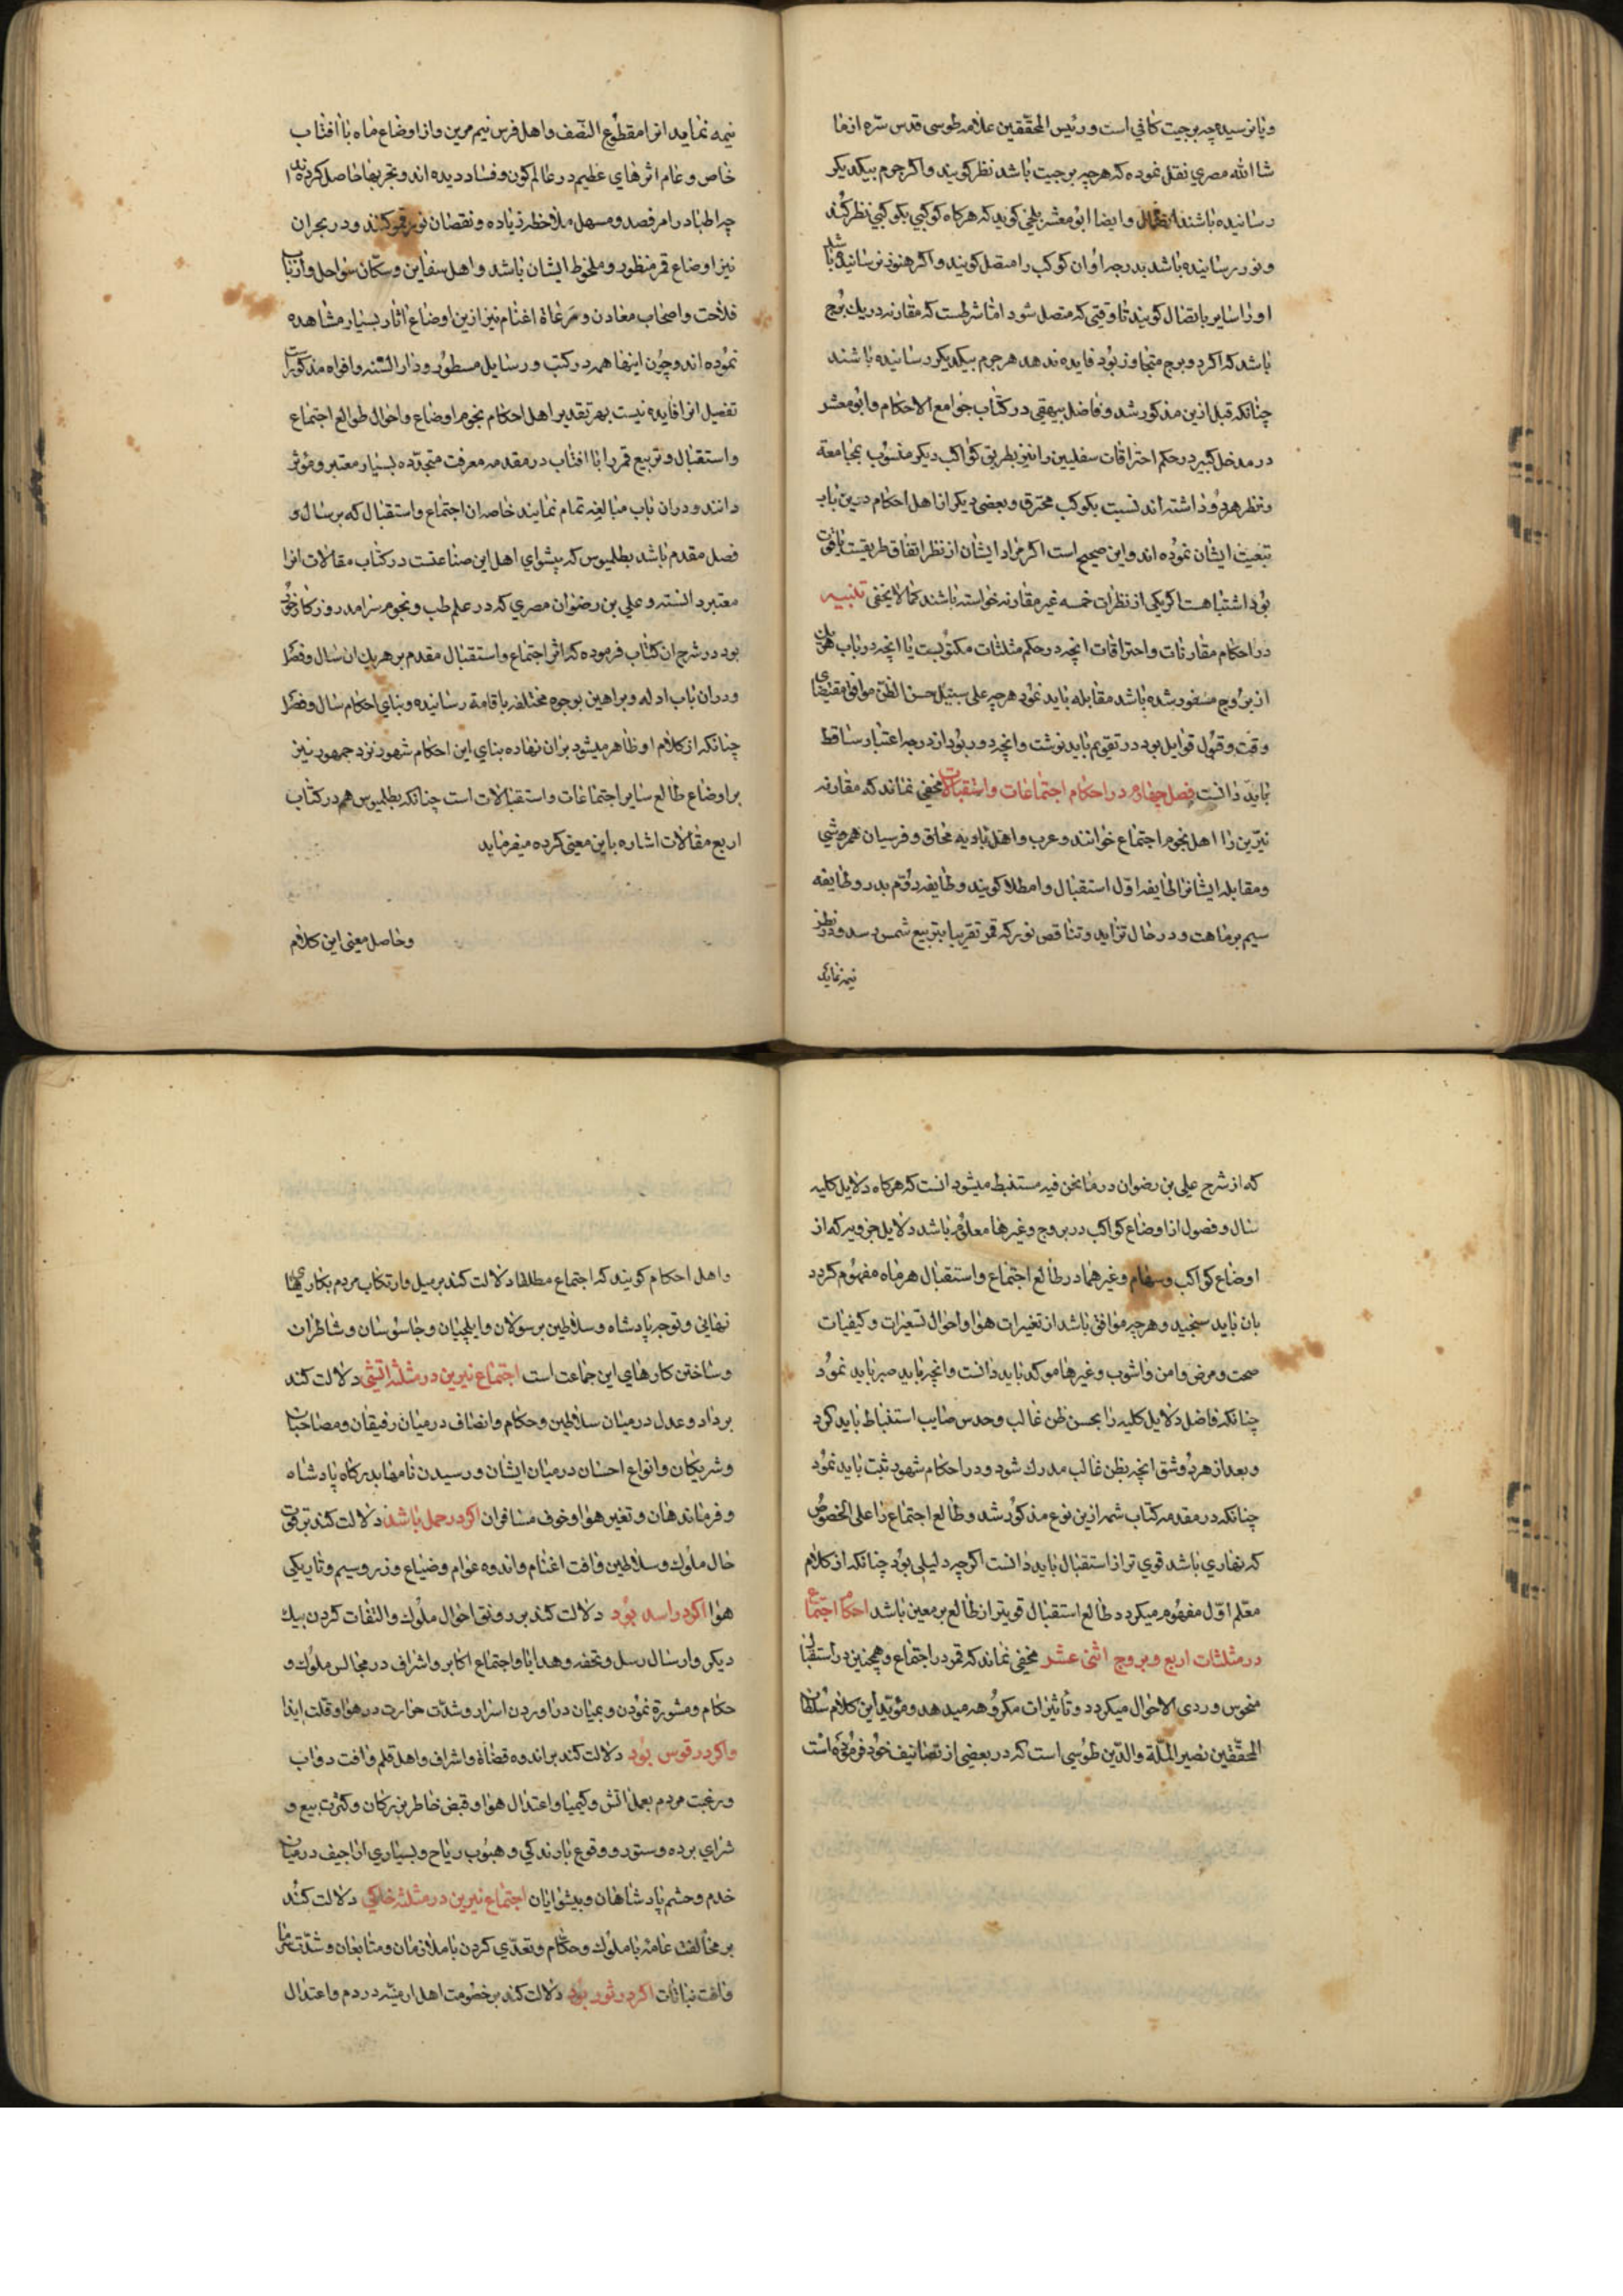 و یا نرسیده چه برجیت کافی است و رئیس المحققین علامه طوسی قدس سره از ما
شاالله مصری نقل نموده که هرچه برجیت باشد نظر کویند واکر جرم بیکدیکر
رسانیده باشند اتصال وایضا ابو معشر بلخی کوید که هرکاه کوکبی بکوکبی نظر کند
و نور رسانیده باشد بدرجه او ان کوکب را متصل کویند واکر هنوز نرسانیده باشد
اورا سایر باتصال کویند تا وقتی که متصل شود اما شرطست که مقارنه در یك برج
باشد که اکر دو برج متجاوز بود فایده ندهد هر جرم بیکدیکر رسانیده باشند
چنانکه قبل ازین مذکور شد وفاضل بیهقی در کتاب جوامع الاحکام وابو معشر
در مدخل کبیر در حکم احتراقات سفلیین را نیز بطریق کواکب دیکر منسوب بمجامعة
ونظر هر دو داشته اند نسبت بکوکب محترق وبعضی دیکر از اهل احکام درین باب
تبعیت ایشان نموده اند واین صحیح است اکر مراد ایشان از نظر اتفاق طریقست یا فوت
بود اشتباهست اکر یکی از نظرات خمسه غیر مقارنه خواسته باشند کما لا یخفی تنبیه
در احکام مقارنات واحتراقات انچه در حکم مثلثات مکتوبست یا انچه در باب هریك
از بروج مسفور شده باشد مقابله باید نمود هرچه علی سبیل حسن الظن موافق مقتضای
وقت وقبول قوابل بود در تقویم باید نوشت وانچه دور بود از درجه اعتبار ساقط
باید دانست فصل چهارم در احکام اجتماعات واستقبالات مخفی نماند که مقارنه
نیرین را اهل نجوم اجتماع خوانند وعرب واهل بادیه محاق وفرسیان همرمشی
ومقابله ایشانرا طایفه اول استقبال وامطلا کویند وطایفه دوم بدر وطایفه
سیم پرماهت ودر حال تزاید وتناقص نور که قمر تقریبا بتربیع شمس رسد ودر نظر
نیمه نماید
نیمه نماید انرا مقطوع النصف واهل فرس نیم مرین واز اوضاع ماه با افتاب
خاص وعام اثرهای عظیم در عالم کون وفساد دیده اند وتجربها حاصل کرده اند
چه اطبا در امر فصد ومسهل ملاحظه زیاده ونقصان نور قمر کنند ودر بحران
نیز اوضاع قمر منظور وملحوظ ایشان باشد واهل سفاین وسکان سواحل وارباب
فلاحت واصحاب معادن ومرعاة اغنام نیز ازین اوضاع اثار بسیار مشاهده
نموده اند وچون اینها همه در کتب ورسایل مسطور ودار السنه وافواه مذکورست
تفصیل انرا فایده نیست بهر تقدیر اهل احکام نجوم اوضاع واحوال طوالع اجتماع
واستقبال وتربیع قمر را با افتاب در مقدمه معرفت متجدده بسیار معتبر ومؤثر
دانند ودران باب مبالغه تمام نمایند خاصه ان اجتماع واستقبال که بر سال و
فصل مقدم باشد بطلمیوس که پیشوای اهل این صناعتست در کتاب مقالات انرا
معتبر دانسته وعلی بن رضوان مصری که در علم طب ونجوم سرامد روزکار خود
بود در شرح ان کتاب فرموده که اثر اجتماع واستقبال مقدم بر هر یك ان سال وفصل را
ودران باب ادله وبراهین بوجوه مختلفه باقامة رسانیده وبنای احکام سال وفصل را
چنانکه از کلام او ظاهر میشود بران نهاده بنای این احکام شهور نزد جمهور نیز
بر اوضاع طالع سایر اجتماعات واستقبالات است چنانکه بطلمیوس هم در کتاب
اربع مقالات اشاره باین معنی کرده میفرماید
وحاصل معنی این کلام
که از شرح علی بن رضوان در ما نحن فیه مستنبط میشود انست که هرکاه دلایل کلیه
سال وفصول از اوضاع کواکب در بروج وغیرها معلوم باشد دلایل جزویه که از
اوضاع کواکب وسهام وغیرهما در طالع اجتماع واستقبال هر ماه مفهوم کردد
بان باید سنجید وهرچه موافق باشد از تغیرات هوا واحوال تسعیرات وکیفیات
صحت ومرض وامن واشوب وغیرها موکد باید دانست وانچه باید صبر باید نمود
چنانکه فاضل دلایل کلیه را بحسن ظن غالب وحدس صایب استنباط باید کرد
وبعد از هر دو شق انچه بظن غالب مدرك شود ودر احکام شهود ثبت باید نمود
چنانکه در مقدمه کتاب شمه ازین نوع مذکور شد وطالع اجتماع را علی الخصوص
که نهاری باشد قوی تر از استقبال باید دانست اکرچه دلیلی بود چنانکه از کلام
معلم اول مفهوم میکردد طالع استقبال قویتر از طالع بر معین باشد احکام اجتماع
در مثلثات اربع وبروج اثنی عشر مخفی نماند که قمر در اجتماع وهمچنین در استقبال
منحوس وردی الاحوال میکردد وتأثیرات مکروهه میدهد ومؤید این کلام سلطان
المحققین نصیر الملة والدین طوسی است که در بعضی از تصانیف خود فرموده است
واهل احکام کویند که اجتماع مطلقا دلالت کند بر میل وارتکاب مردم بکارهای
نهانی وتوجه پادشاه وسلاطین برسولان وایلچیان وجاسوسان وشاطران
وساختن کارهای این جماعت است اجتماع نیرین در مثلثه اتشی دلالت کند
بر داد وعدل در میان سلاطین وحکام وانصاف در میان رفیقان ومصاحبان
وشریکان وانواع احسان در میان ایشان ورسیدن نامها بدرکاه پادشاه
وفرماندهان وتغیر هوا وخوف مسافران اکر در حمل باشد دلالت کند بر قوت
حال ملوك وسلاطین وافت اغنام واندوه عوام وضیاع وزر وسیم وتاریکی
هوا اکر در اسد بود دلالت کند بر رونق احوال ملوك والتفات کردن بیك
دیکر وارسال رسل وتحفه وهدایا واجتماع اکابر واشراف در مجالس ملوك و
حکام ومشورة نمودن وبمیان در اوردن اسرار وشدت حرارت در هوا وقلت ایذا
واکر در قوس بود دلالت کند بر اندوه قضاة واشراف واهل قلم وافت دواب
ورغبت مردم بعمل اتش وکیمیا واعتدال هوا وقبض خاطر بزرکان وکثرت بیع و
شرای برده وستور ووقوع بارندکی وهبوب ریاح وبسیاری اراجیف در میان
خدم وحشم پادشاهان وپیشوایان اجتماع نیرین در مثلثه خاکی دلالت کند
بر مخالفت عامه با ملوك وحکام وتعدی کردن با ملازمان ومتابعان وشدت سرما
وافت نباتات اکر در ثور بود دلالت کند بر خصومت اهل ارمنیه در دم واعتدال